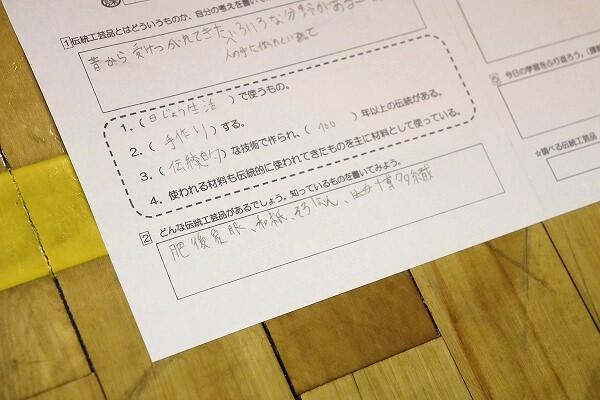 1 伝統工芸品とはどういうものか、自分の考えを書いて
昔から受けつがれてきた、いろいろな分野がある
人の手に
1.(日じょう生活)で使うもの。
2.(手作り)する。
3.(伝統的)な技術で作られ、(100)年以上の伝統がある。
4. 使われる材料も伝統的に使われてきたものを主に材料として使っている。
2 どんな伝統工芸品があるでしょう。知っているものを書いてみよう。
肥後象眼、和紙、そうげん、博多織
今日の学習をふり返ろう。
☆調べる伝統工芸品